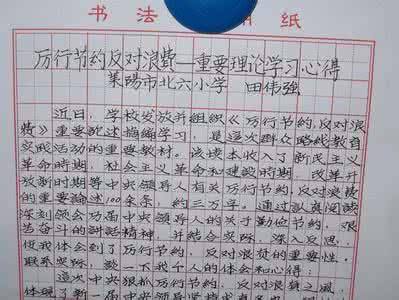 书法 用纸
厉行节约反对浪费—重要理论学习心得
莱阳市北六小学 田伟强
近日，学校发放并组织《厉行节约，反对浪
费》重要论述摘编学习，是这次群众路线教育
实践活动的重要教材。该读本收入了新民主主义
革命时期，社会主义革命和建设时期，改革开
放新时期等中央领导人有关厉行节约，反对浪费
的重要论述100余条，约三万字。通过认真阅读
深刻领会历届中央领导人的关于勤俭节约，艰
苦奋斗的讲话精神，并结合实际，深入反思，
使我体会到了厉行节约，反对浪费的重要性，
联系实际，谈一下我个人的体会和心得：
这次中央狠抓厉行节约、反对浪费之风，
体现了新一届中央领导